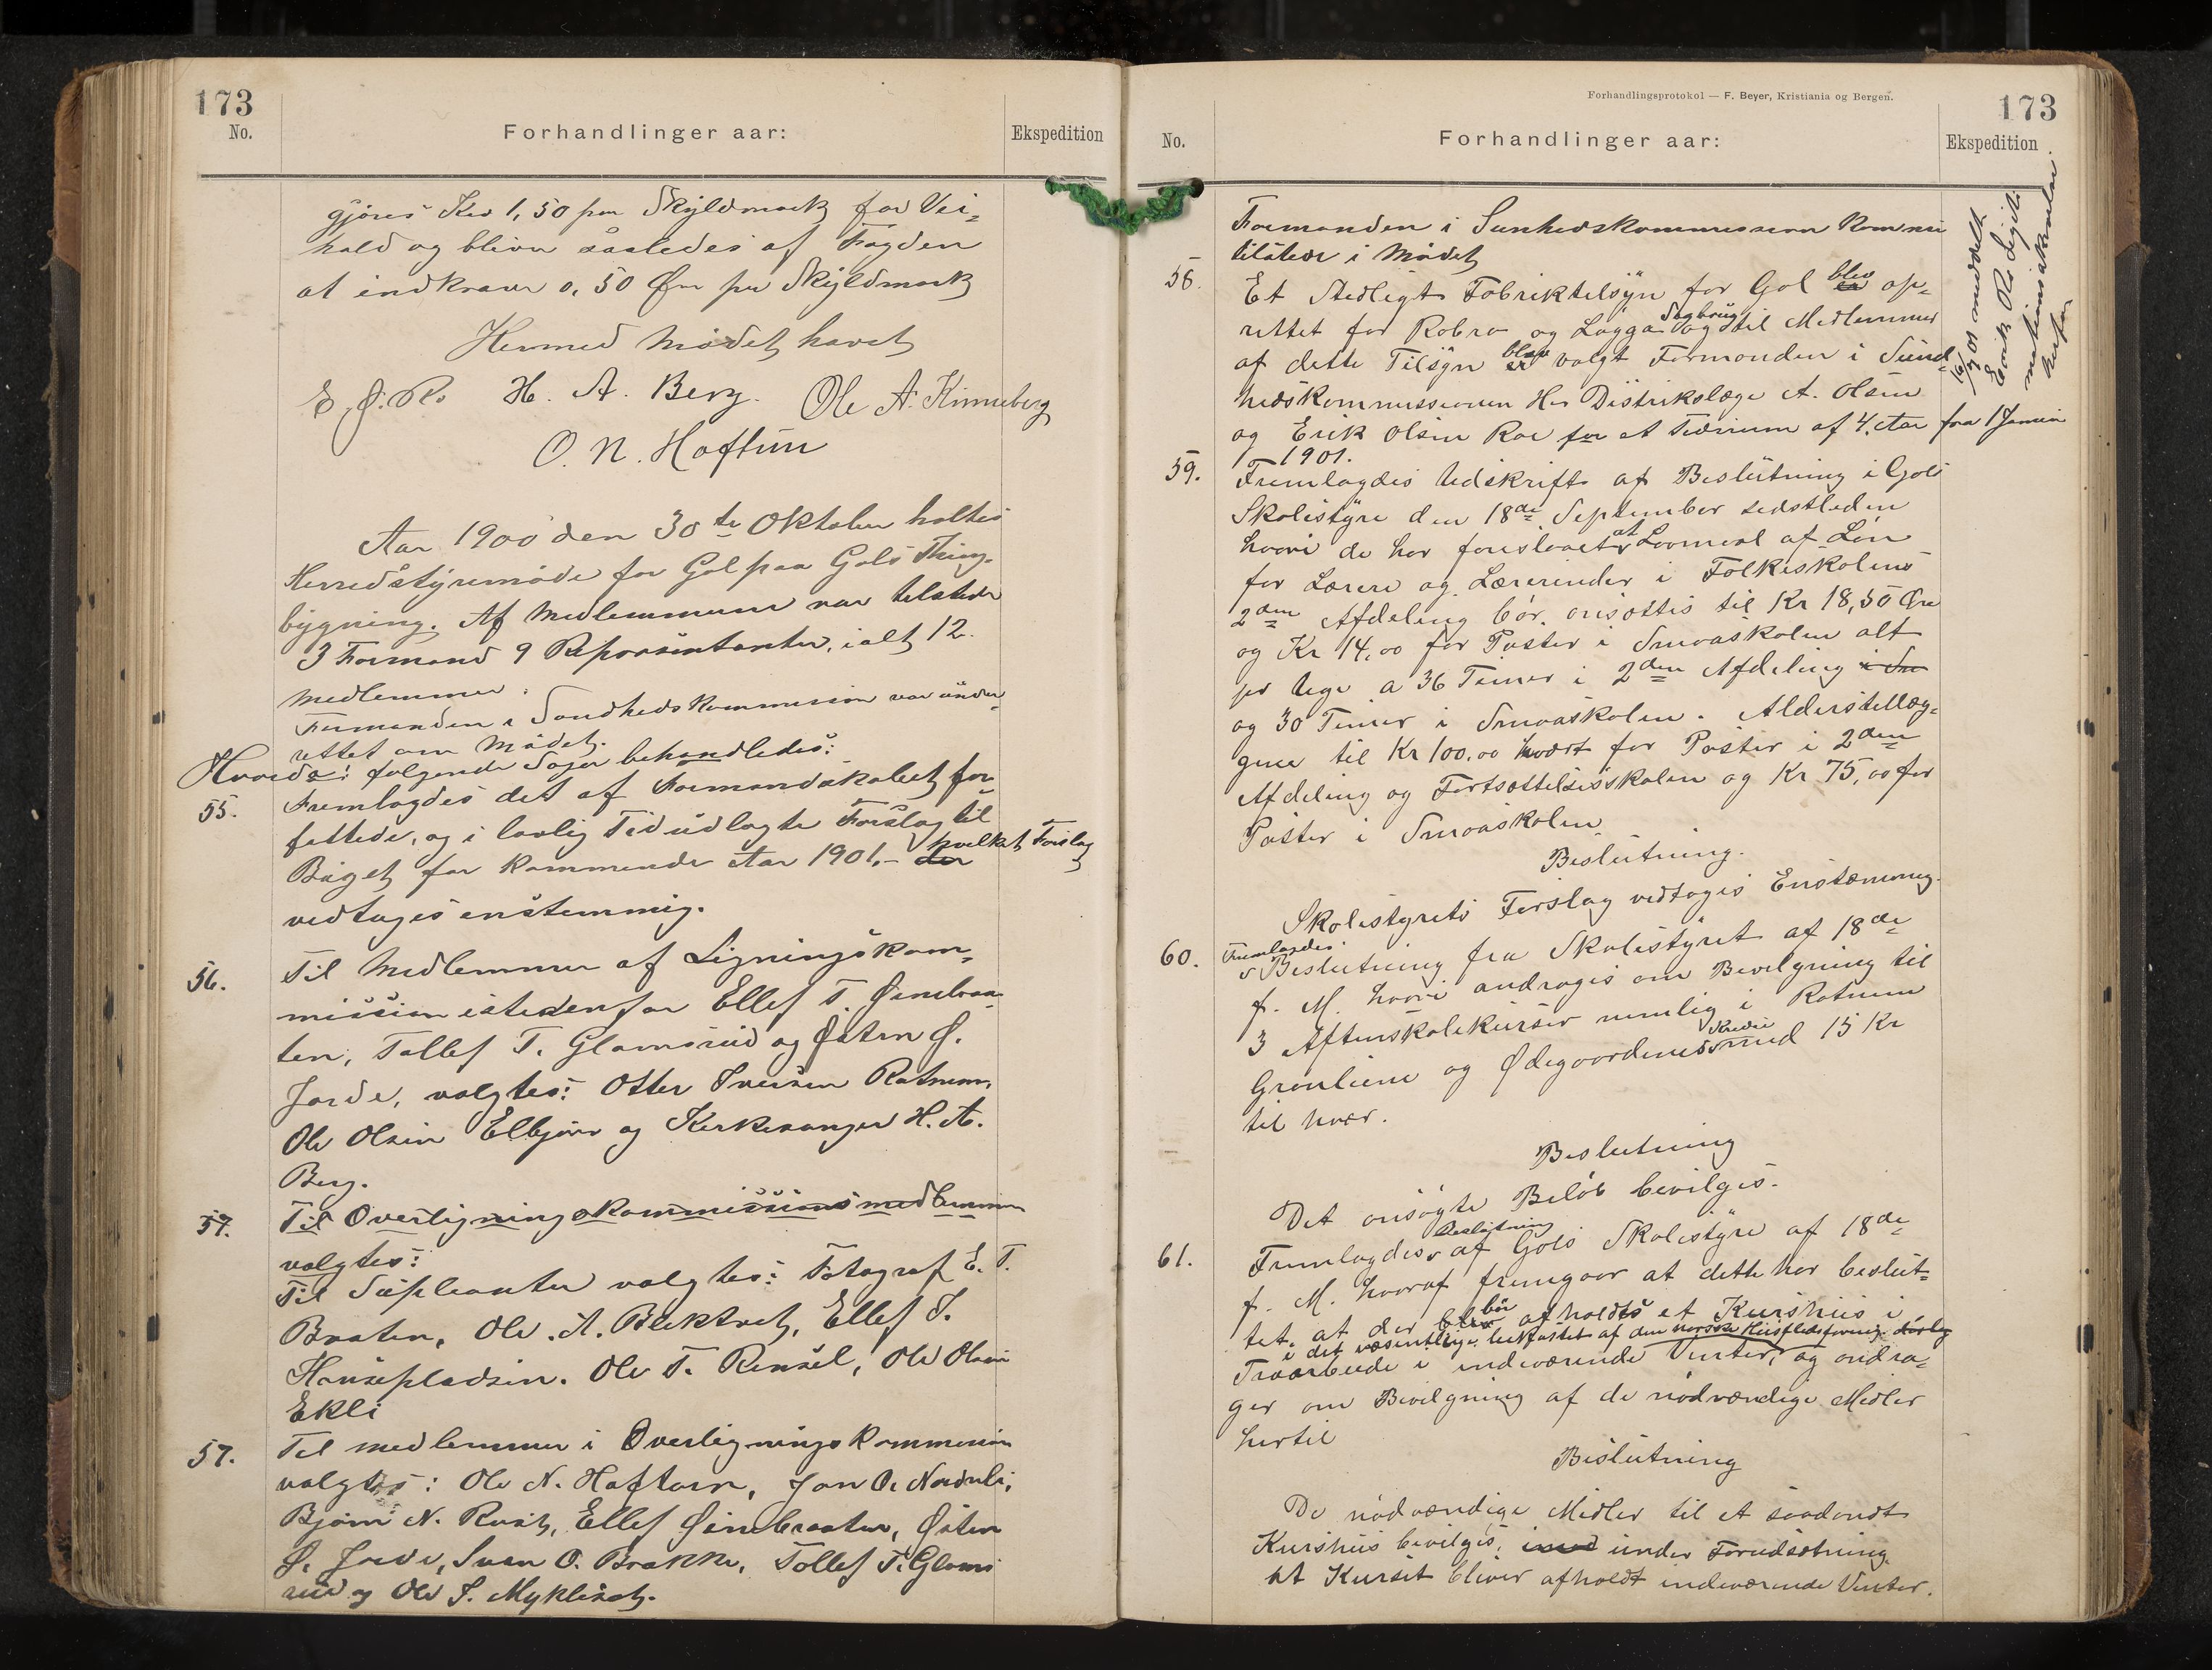 173
No.
Forhandlinger aar:
Ekspedition
gjøres Kr 1,50 per Skyldmark for Vei-
hold og bliver saaledes af Fogden
at indkræve 0,50 Øre per Skyldmark
Hermed Mødet hævet
E. J. R. H. A. Berg. Ole A. Kinneberg
O. N. Haftun
Aar 1900 den 30te Oktober holtes
Herredstyremøde for Gol paa Gols Thing-
bygning. Af Medlemmerne var tilstede
3 Formænd 9 Repræsentanter, ialt 12
Medlemmer.
Formanden i Sundhedskommission var under-
rettet om Mødet.
Hvorda: følgende Sager behandledes:
55.
Fremlagdes det af Formandskabet for-
fattede, og i lovlig Tid udlagte Forslag til
Buget for kommende Aar 1901.- der hvilket Forslag
vedtages enstemmig.
56.
Til Medlemmer af Ligningskom-
mission istedenfor Ellef T. Øinebraa-
ten, Tollef T. Glomsrud og Østen Ø.
Jorde, valgtes: Otter Iversen Rotneim,
Ole Olsen Elbjør og Kirkesanger H. A.
Berg.
57.
Til Overligningskommissionsmedlemmer
valgtes:
Til Supleanter valgtes: Fotograf E. T.
Braaten, Ole A. Bektvet, Ellef T.
Hansepladsen. Ole T. Rensel, Ole Olsen
Ekli
57.
Til medlemmer i Overligningskommission
valgtes: Ole N. Haftorn, Jon O. Nordli,
Bjørn N. Rust, Ellef Øinebraaten, Østen
Ø. Jorde, Sven O. Brakke, Tollef T. Gloms
rud og Ole S. Myklset.
Forhandlingsprotokol — F. Beyer, Kristiania og Bergen.
173
No.
Forhandlinger aar:
Ekspedition
Formanden i Sunhedskommission kom nu
tilstede i Mødet
58.
Et Stedligt Fabriktilsyn for Gol er blev op-
rettet for Robro og Løgga Sagbrug og til Medlemmer
af dette Tilsyn er blev valgt Formanden i Sund-
hedskommissionen Hr Distrikslæge A. Olsen
og Erik Olsen Roe for et Tidsrum af 4 Aar fra 1 Januar
1901.
16/1 01 meddelt
Erik Ro
59.
Fremlagdes Udskrift af Beslutning i Gols
Skolestyre den 18de September sidstleden
hvori de har foreslaaet at Normal af Løn
for Lærere og Lærerinder i Folkeskolens
2den Afdeling bør ansættes til Kr 18,50 Øre
og Kr 14,00 for Poster i Smaaskolen alt
pr Uge a 36 Timer i 2den Afdeling i Sm
og 30 Timer i Smaaskolen. Alderstillæg-
gene til Kr 100,00 hvert for Poster i 2den
Afdeling og Fortsættelsesskolen og Kr 75,00 for
Poster i Smaaskolen
Beslutning.
Skolestyrets Forslag vedtages Enstemmig.
60.
Fremlagdes
Beslutning fra Skolestyret af 18de
f. M. hvori andrages om Bevilgning til
3 Aftenskolekurser nemlig i Rotneim
Grønlien og Ødegaardens Kreds med 15 Kr
til hver.
Beslutning
Det ansøgte Beløb bevilges.
61.
Fremlagdes Beslutning af Gols Skolestyre af 18de
f. M. hvoraf fremgaar at dette har beslut-
tet, at der blev bør afholdes et Kurshus i
i det væsentlige bekostet af den norske Husflidsforening
Træarbeide i indeværende Vinter, og andra-
ger om Bevilgning af de nødvændige Midler
hertil
Beslutning
De nødvændige Midler til et saadandt
Kurshus bevilges, imod under Forudsætning
at Kurset bliver afholdt indeværende Vinter.